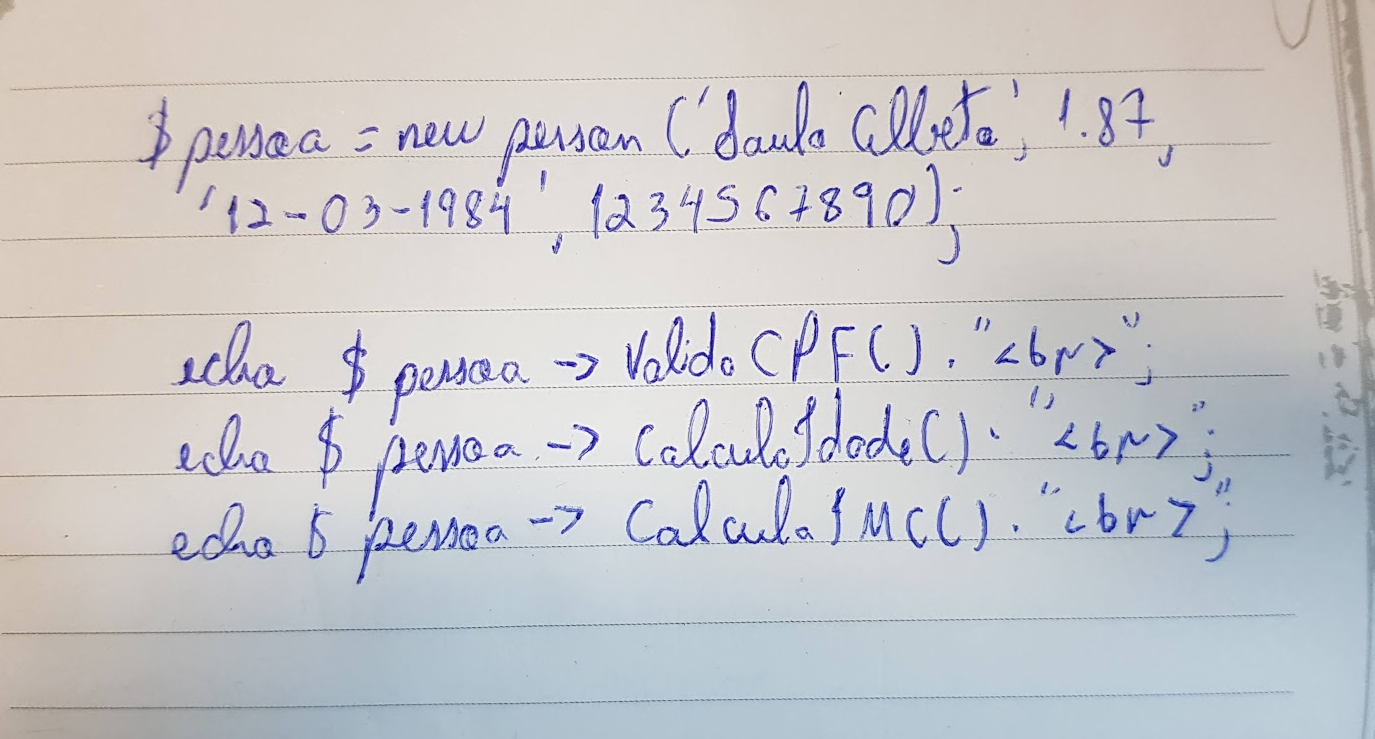 $pessoa = new person ('Saulo Alberto', 1.87,
'12-03-1984', 1234567890);
echo $ pessoa -> ValidaCPF() . "<br>";
echo $ pessoa -> CalculaIdade() . "<br>";
echo $ pessoa -> CalculaIMC() . "<br>";